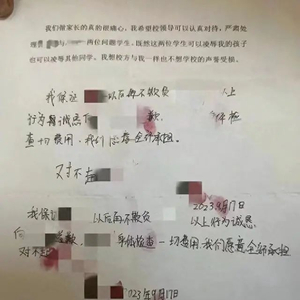 我们做家长的真的很痛心,我希望校领导可以认真对待,严肃处
理 与 两位问题学生。既然这两位学生可以凌辱我的孩子
也可以凌辱其他同学。我想校方与我一样也不想学校的声誉受损。
我保证 以后再不欺负 人上
行为真诚 歉 体检
查一切费用,我们 全部承担
对不
2023年9月17
我保 以后再不欺 以上行为诚恳
向 歉, 身体检查一切费用我们愿意全部承担
对不起
2023年9月17日